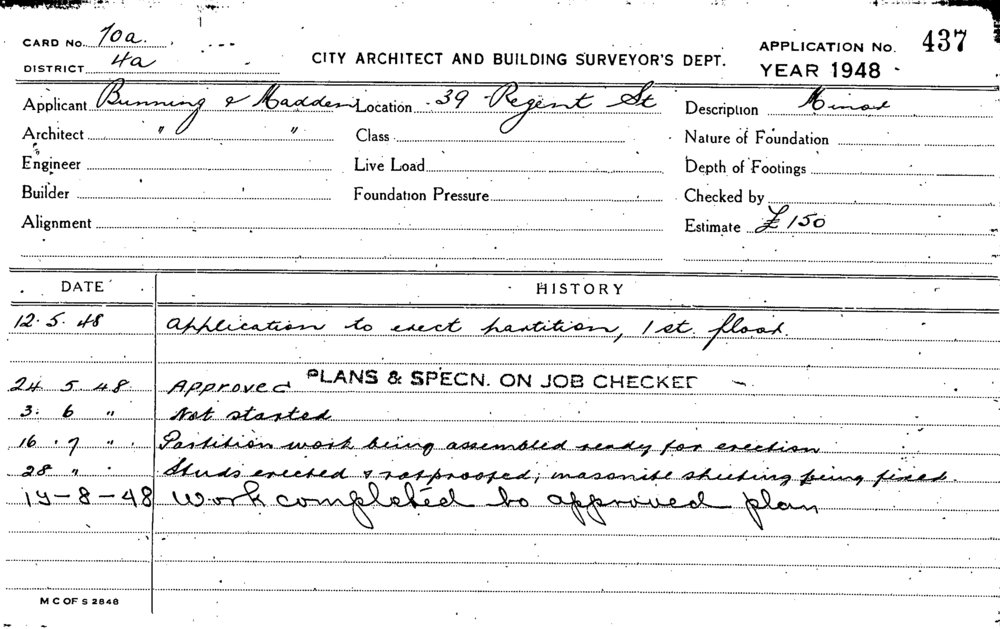 CARD No. 70a.
DISTRICT 4a
CITY ARCHITECT AND BUILDING SURVEYOR'S DEPT.
APPLICATION No. 437
YEAR 1948
Applicant Bunning & Madden Location 39 Regent St Description Minor
Architect " " Class Nature of Foundation
Engineer Live Load Depth of Footings
Builder Foundation Pressure Checked by
Alignment Estimate £150
DATE HISTORY
12.5.48 Application to erect partition, 1st. floor.
24 5 48 Approved PLANS & SPECN. ON JOB CHECKED
3. 6 " Not started
16. 7 " Partition work being assembled ready for erection
28 " Studs erected & ratproofed; masonite sheeting being fixed.
-8-48 Work completed to approved plan
M C OF S 2848